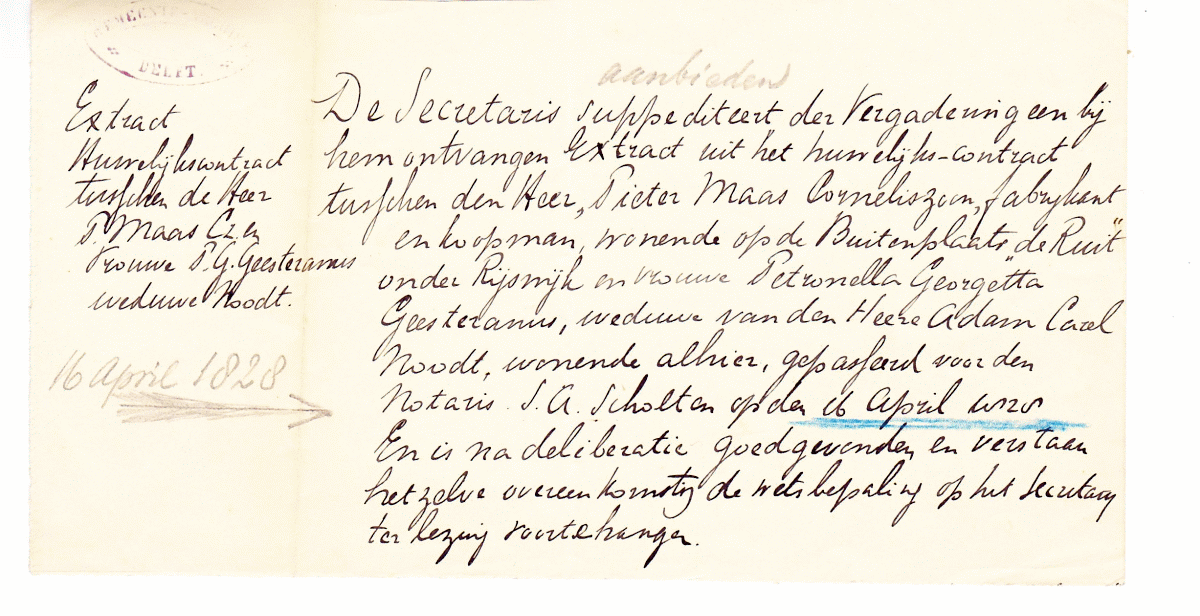 DELFT.
aanbieden
Extract
Huwelijkscontract
tusschen de Heer
P. Maas Cz. en
Vrouwe P.G. Geesteranus
weduwe Noodt.
16 April 1828
De Secretaris suppediteert der Vergadering een bij
hem ontvangen Extract uit het huwelijks-contract
tusschen den Heer, Pieter Maas Corneliszoon, fabrykant
en koopman, wonende op de Buitenplaats "de Ruit"
onder Rijswijk en vrouwe Petronella Georgetta
Geesteranus, weduwe van den Heere Adam Carel
Noodt, wonende alhier, gepasseerd voor den
Notaris S. A. Scholten op den 16 April 1828
En is na deliberatie goedgevonden en verstaan
hetzelve overeenkomstig de wetsbepaling op het Secretary
ter lezing voortehangen.